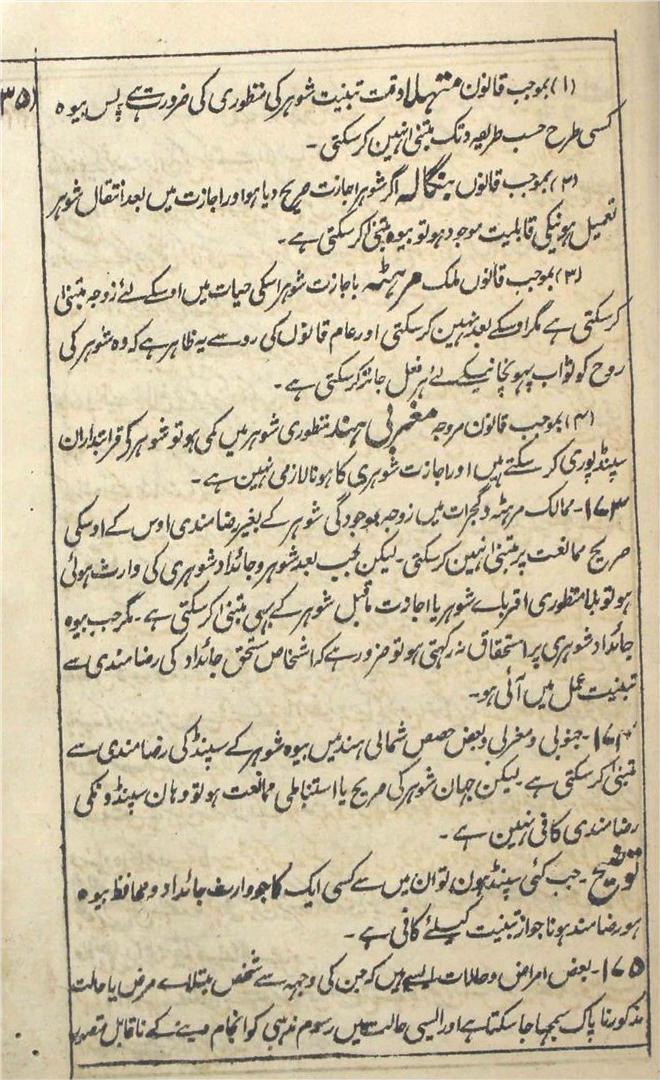 (۳۵
(۱) بموجب قانون متہلا وقت تبنیت شوہر کی منظوری کی ضرورت ہے پس بیوہ
کسی طرح حسب طریقہ دتک متبنیٰ نہین کرسکتی ۔
(۲) بموجب قانون بنگالہ اگر شوہر اجازت صریح دیا ہو اور اجازت میں بعد انتقال شوہر
تعمیل ہونیکی قابلیت موجود ہو تو بیوہ متبنیٰ کرسکتی ہے ۔
(۳) بموجب قانون ملک مرہٹہ باجازت شوہر اسکی حیات میں اوسکے لئے زوجہ متبنیٰ
کرسکتی ہے مگر اوسکے بعد نہین کرسکتی اور عام قانون کی رو سے یہ ظاہر ہے کہ وہ شوہر کی
روح کو ثواب پہونچانیکے لئے ہر فعل جائز کرسکتی ہے ۔
(۴) بموجب قانون مروجہ مغربی ہند منظوری شوہر میں کمی ہو تو شوہر کے قرابتداران
سپنڈ پوری کرسکتے ہیں اور اجازت شوہری کا ہونا لازمی نہین ہے ۔
۱۷۳۔ ممالک مرہٹہ و گجرات میں زوجہ بموجودگی شوہر کے بغیر رضامندی اوس کے اوسکی
صریح ممانعت پر متبنیٰ نہین کرسکتی ۔ لیکن جب بعد شوہر وجائداد شوہری کی وارث ہوئی
ہو تو بلا منظوری اقرباے شوہر یا اجازت ماقبل شوہر کے ہی متبنیٰ کرسکتی ہے ۔ مگر جب بیوہ
جائداد شوہری پر استحقاق نہ رکہتی ہو تو ضرور ہے کہ اشخاص مستحق جائداد کی رضامندی سے
تبنیت عمل میں آئی ہو ۔
۱۷۴۔ جنوبی و مغربی و بعض حصص شمالی ہند میں بیوہ شوہر کے سپنڈ کی رضامندی سے
متبنیٰ کرسکتی ہے ۔ لیکن جہان شوہر کی صریح یا استنباطی ممانعت ہو تو وہان سپنڈونکی
رضامندی کافی نہین ہے ۔
توضیح ۔ جب کئی سپنڈ ہون تو ان میں سے کسی ایک کا جو وارث جائداد و محافظ بیوہ
ہو رضامند ہونا جواز تبنیت کیلئے کافی ہے ۔
۱۷۵۔ بعض امراض و حالات ایسے ہیں کہ جن کی وجہہ سے شخص مبتلاے مرض یا حالت
مذکور ناپاک سمجہا جاسکتا ہے اور ایسی حالت میں رسوم مذہبی کو انجام دینے کے ناقابل متصور